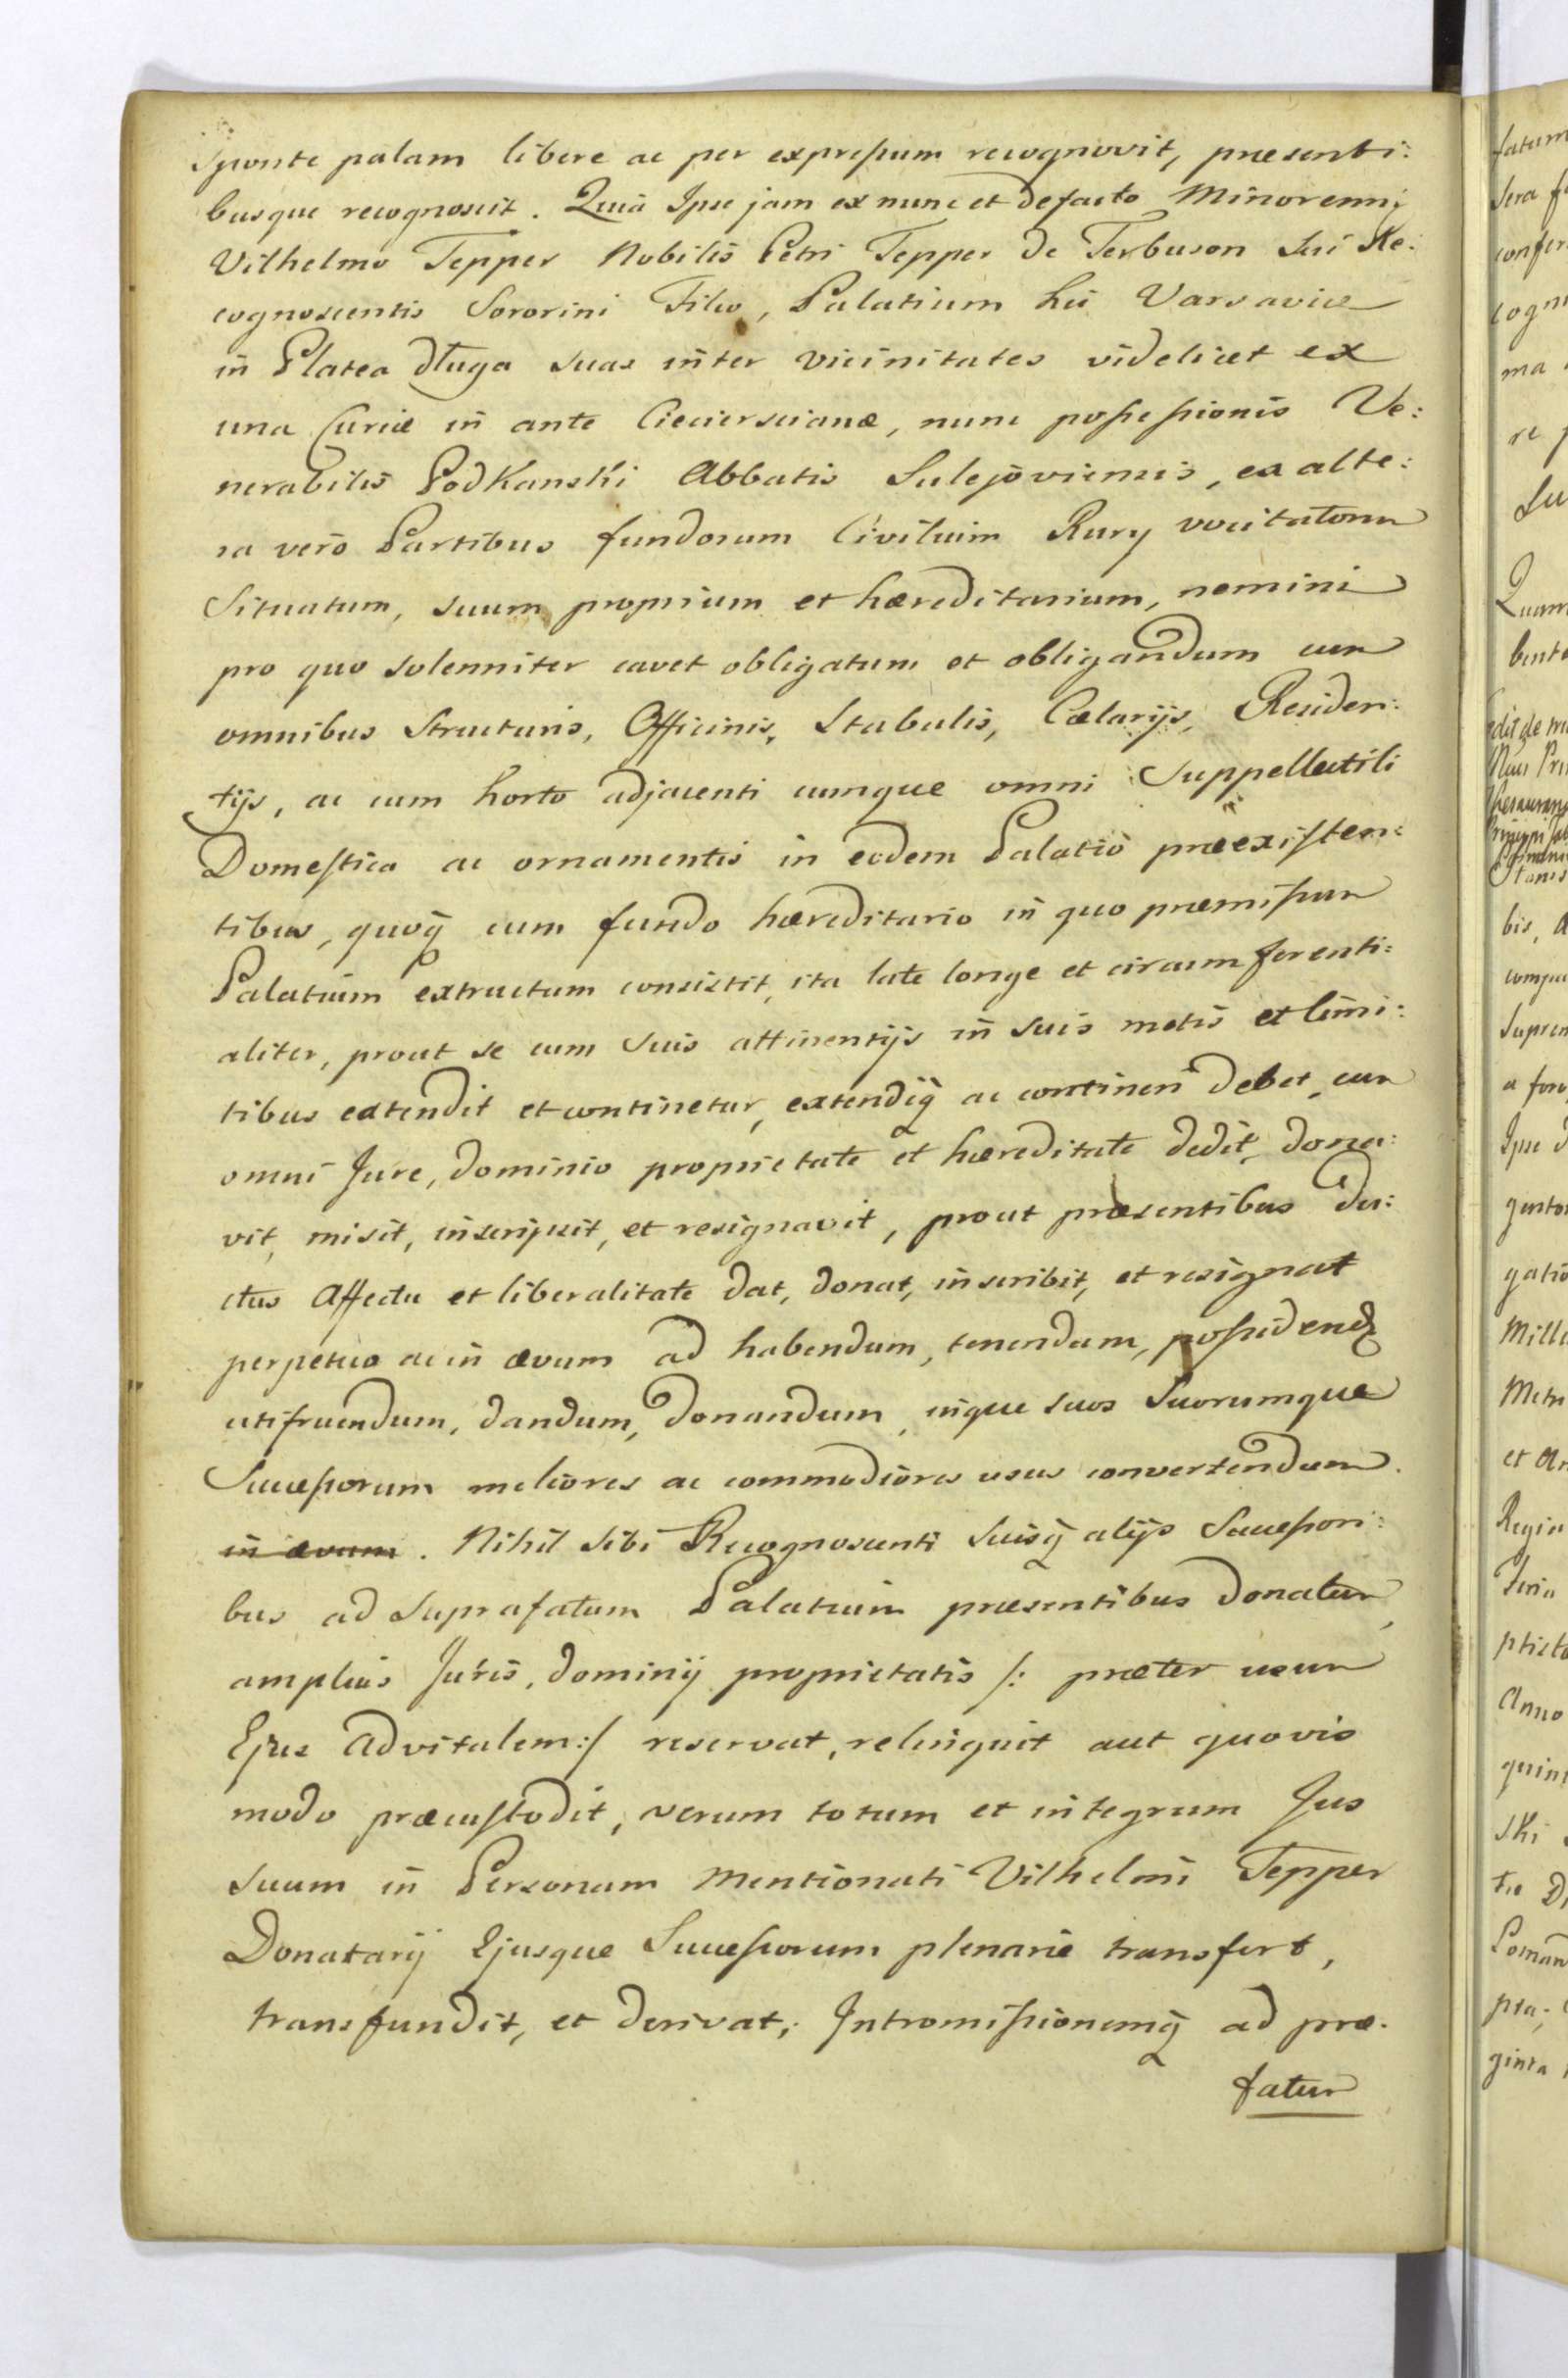 Sponte palam libere ac per expressum recognovit, præsenti:
busque recognoscit. Quia Ipse jam ex nunc et defacto Minorenni
Vilhelmo Tepper Nobilis Petri Tepper de Ferbuson Sui Re:
cognoscentis Sororini Filio, Palatium hic Varsaviæ
in Platea długa suas inter vicinitates videlicet ex
una Curiæ in ante Cieciersciana, nunc possessionis Ve:
nerabilis Podkanski Abbatis Sulejoviensis, ex alte:
ra vero Partibus fundorum Civilium Rury vocitatorum
Situatum, suum proprium et hæreditarium, nemini
pro quo solenniter cavet obligatum et obligandum cum
omnibus Structuris, Officinis, Stabulis, Cælarijs, Residen:
tijs, ac cum horto adjacenti cumque omni Suppellectili
Domestica ac ornamentis in eodem Palatio præexisten:
tibus, quoq cum fundo hæreditario in quo præmissum
Palatium extructum consistit, ita late longe et circumferenti:
aliter, prout se cum suis attinentijs in suis metis et limi:
tibus extendit et continetur, extendiq ac contineri debet, cum
omni Jure, dominio proprietate et hæreditate dedit, dona:
vit, misit, inscripsit, et resignavit, prout præsentibus du:
ctus Affectu et liberalitate dat, donat, inscribit, et resignat
perpetuo ac in ævum ad habendum, tenendum, possidend
utifruendum, dandum, donandum, inque suos Suorumque
Successorum meliores ac commodiores usus convertendum.
in ævum. Nihil sibi Recognoscenti Suisq alijs Successori:
bus ad Suprafatum Palatium præsentibus donatum,
amplius Juris, dominij proprietatis /: præter usum
Ejus advitalem:/ reservat, relinquit aut quovis
modo præcustodit, verum totum et integrum Jus
suum in Personam mentionati Vilhelmi Tepper
Donatarij Ejusque Successorum plenarie transfert,
transfundit, et derivat, Intromissionemq ad præ.
fatum